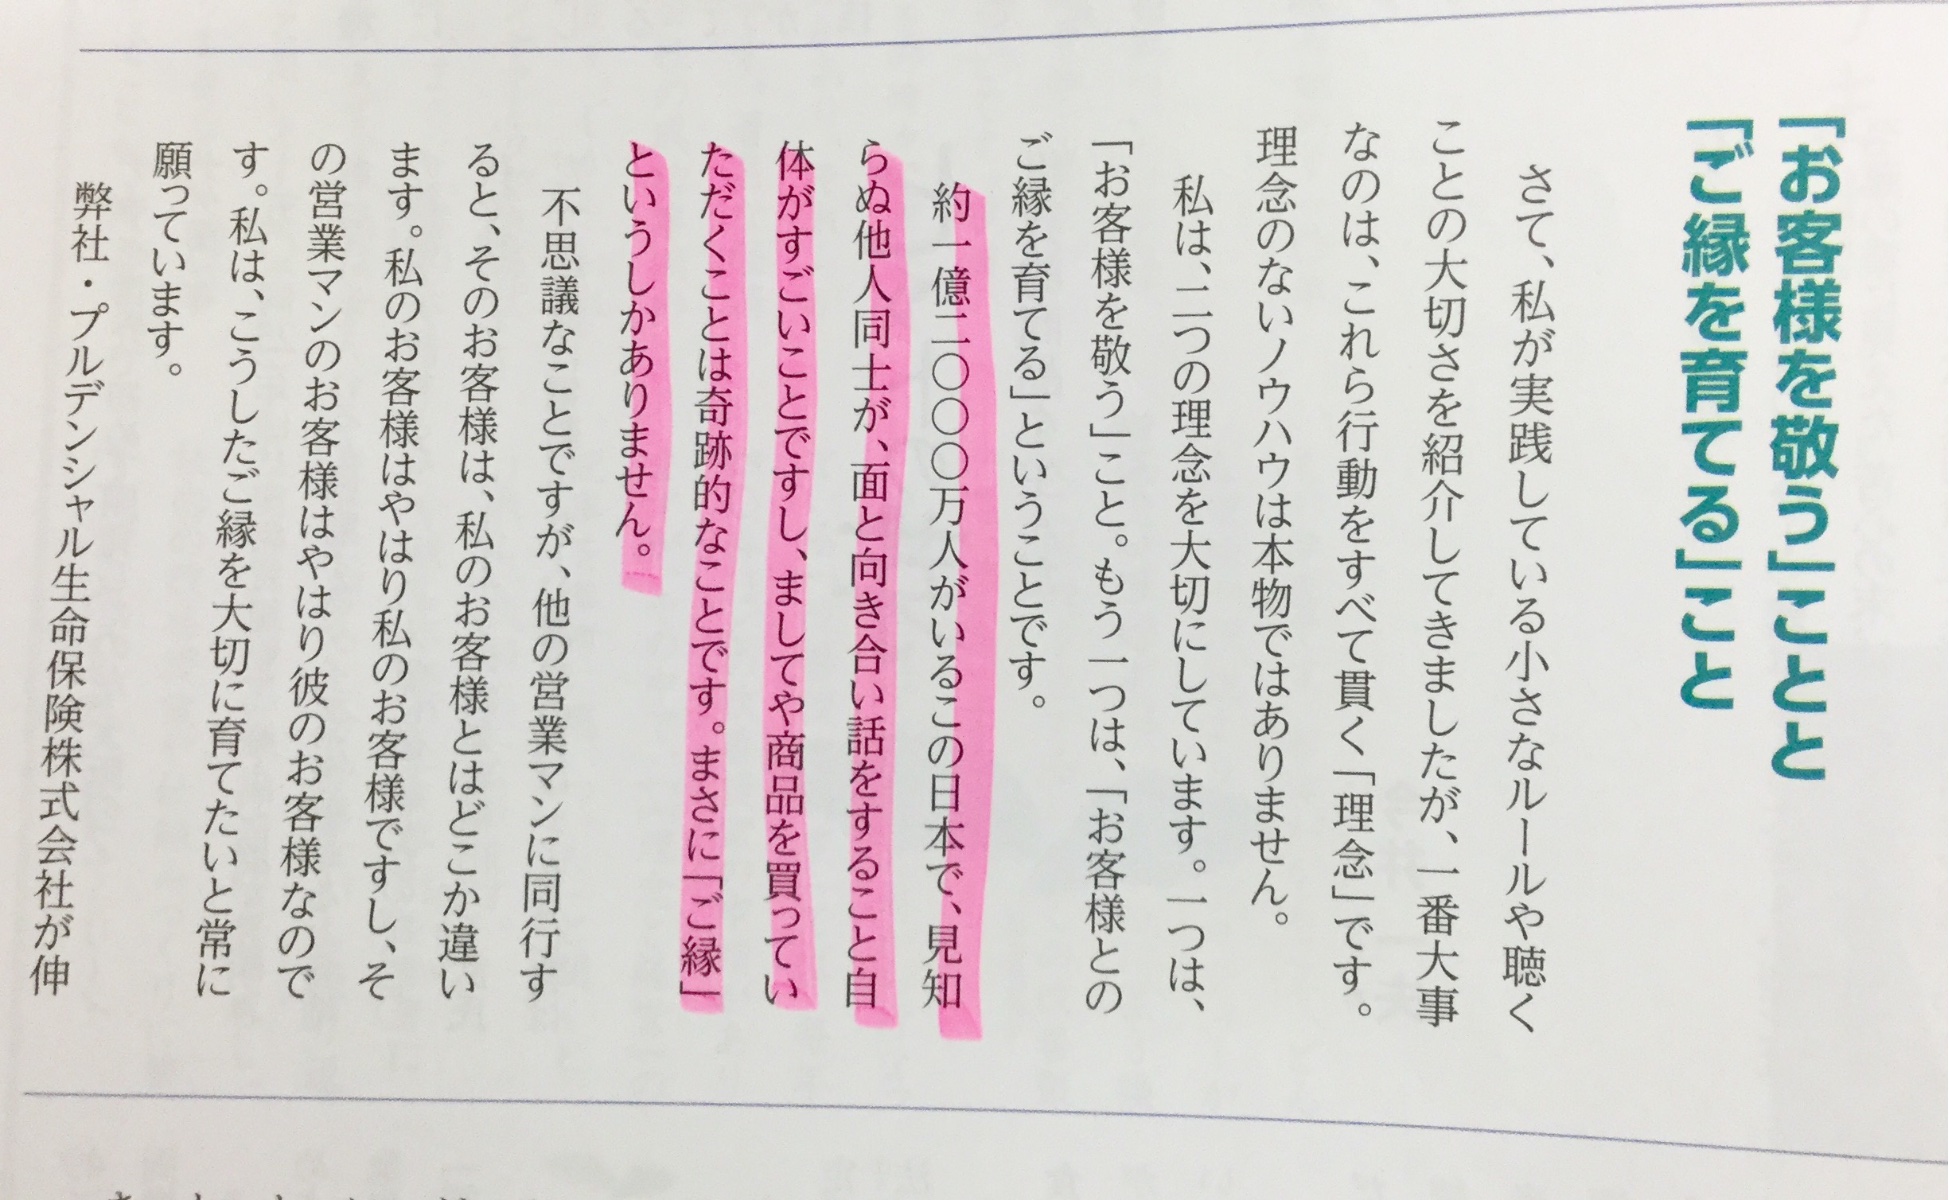 「お客様を敬う」ことと
「ご縁を育てる」こと
さて、私が実践している小さなルールや聴く
ことの大切さを紹介してきましたが、一番大事
なのは、これら行動をすべて貫く「理念」です。
理念のないノウハウは本物ではありません。
私は、二つの理念を大切にしています。一つは、
「お客様を敬う」こと。もう一つは、「お客様との
ご縁を育てる」ということです。
約一億二〇〇〇万人がいるこの日本で、見知
らぬ他人同士が、面と向き合い話をすること自
体がすごいことですし、ましてや商品を買ってい
ただくことは奇跡的なことです。まさに「ご縁」
というしかありません。
不思議なことですが、他の営業マンに同行す
ると、そのお客様は、私のお客様とはどこか違い
ます。私のお客様はやはり私のお客様ですし、そ
の営業マンのお客様はやはり彼のお客様なので
す。私は、こうしたご縁を大切に育てたいと常に
願っています。
弊社・プルデンシャル生命保険株式会社が伸